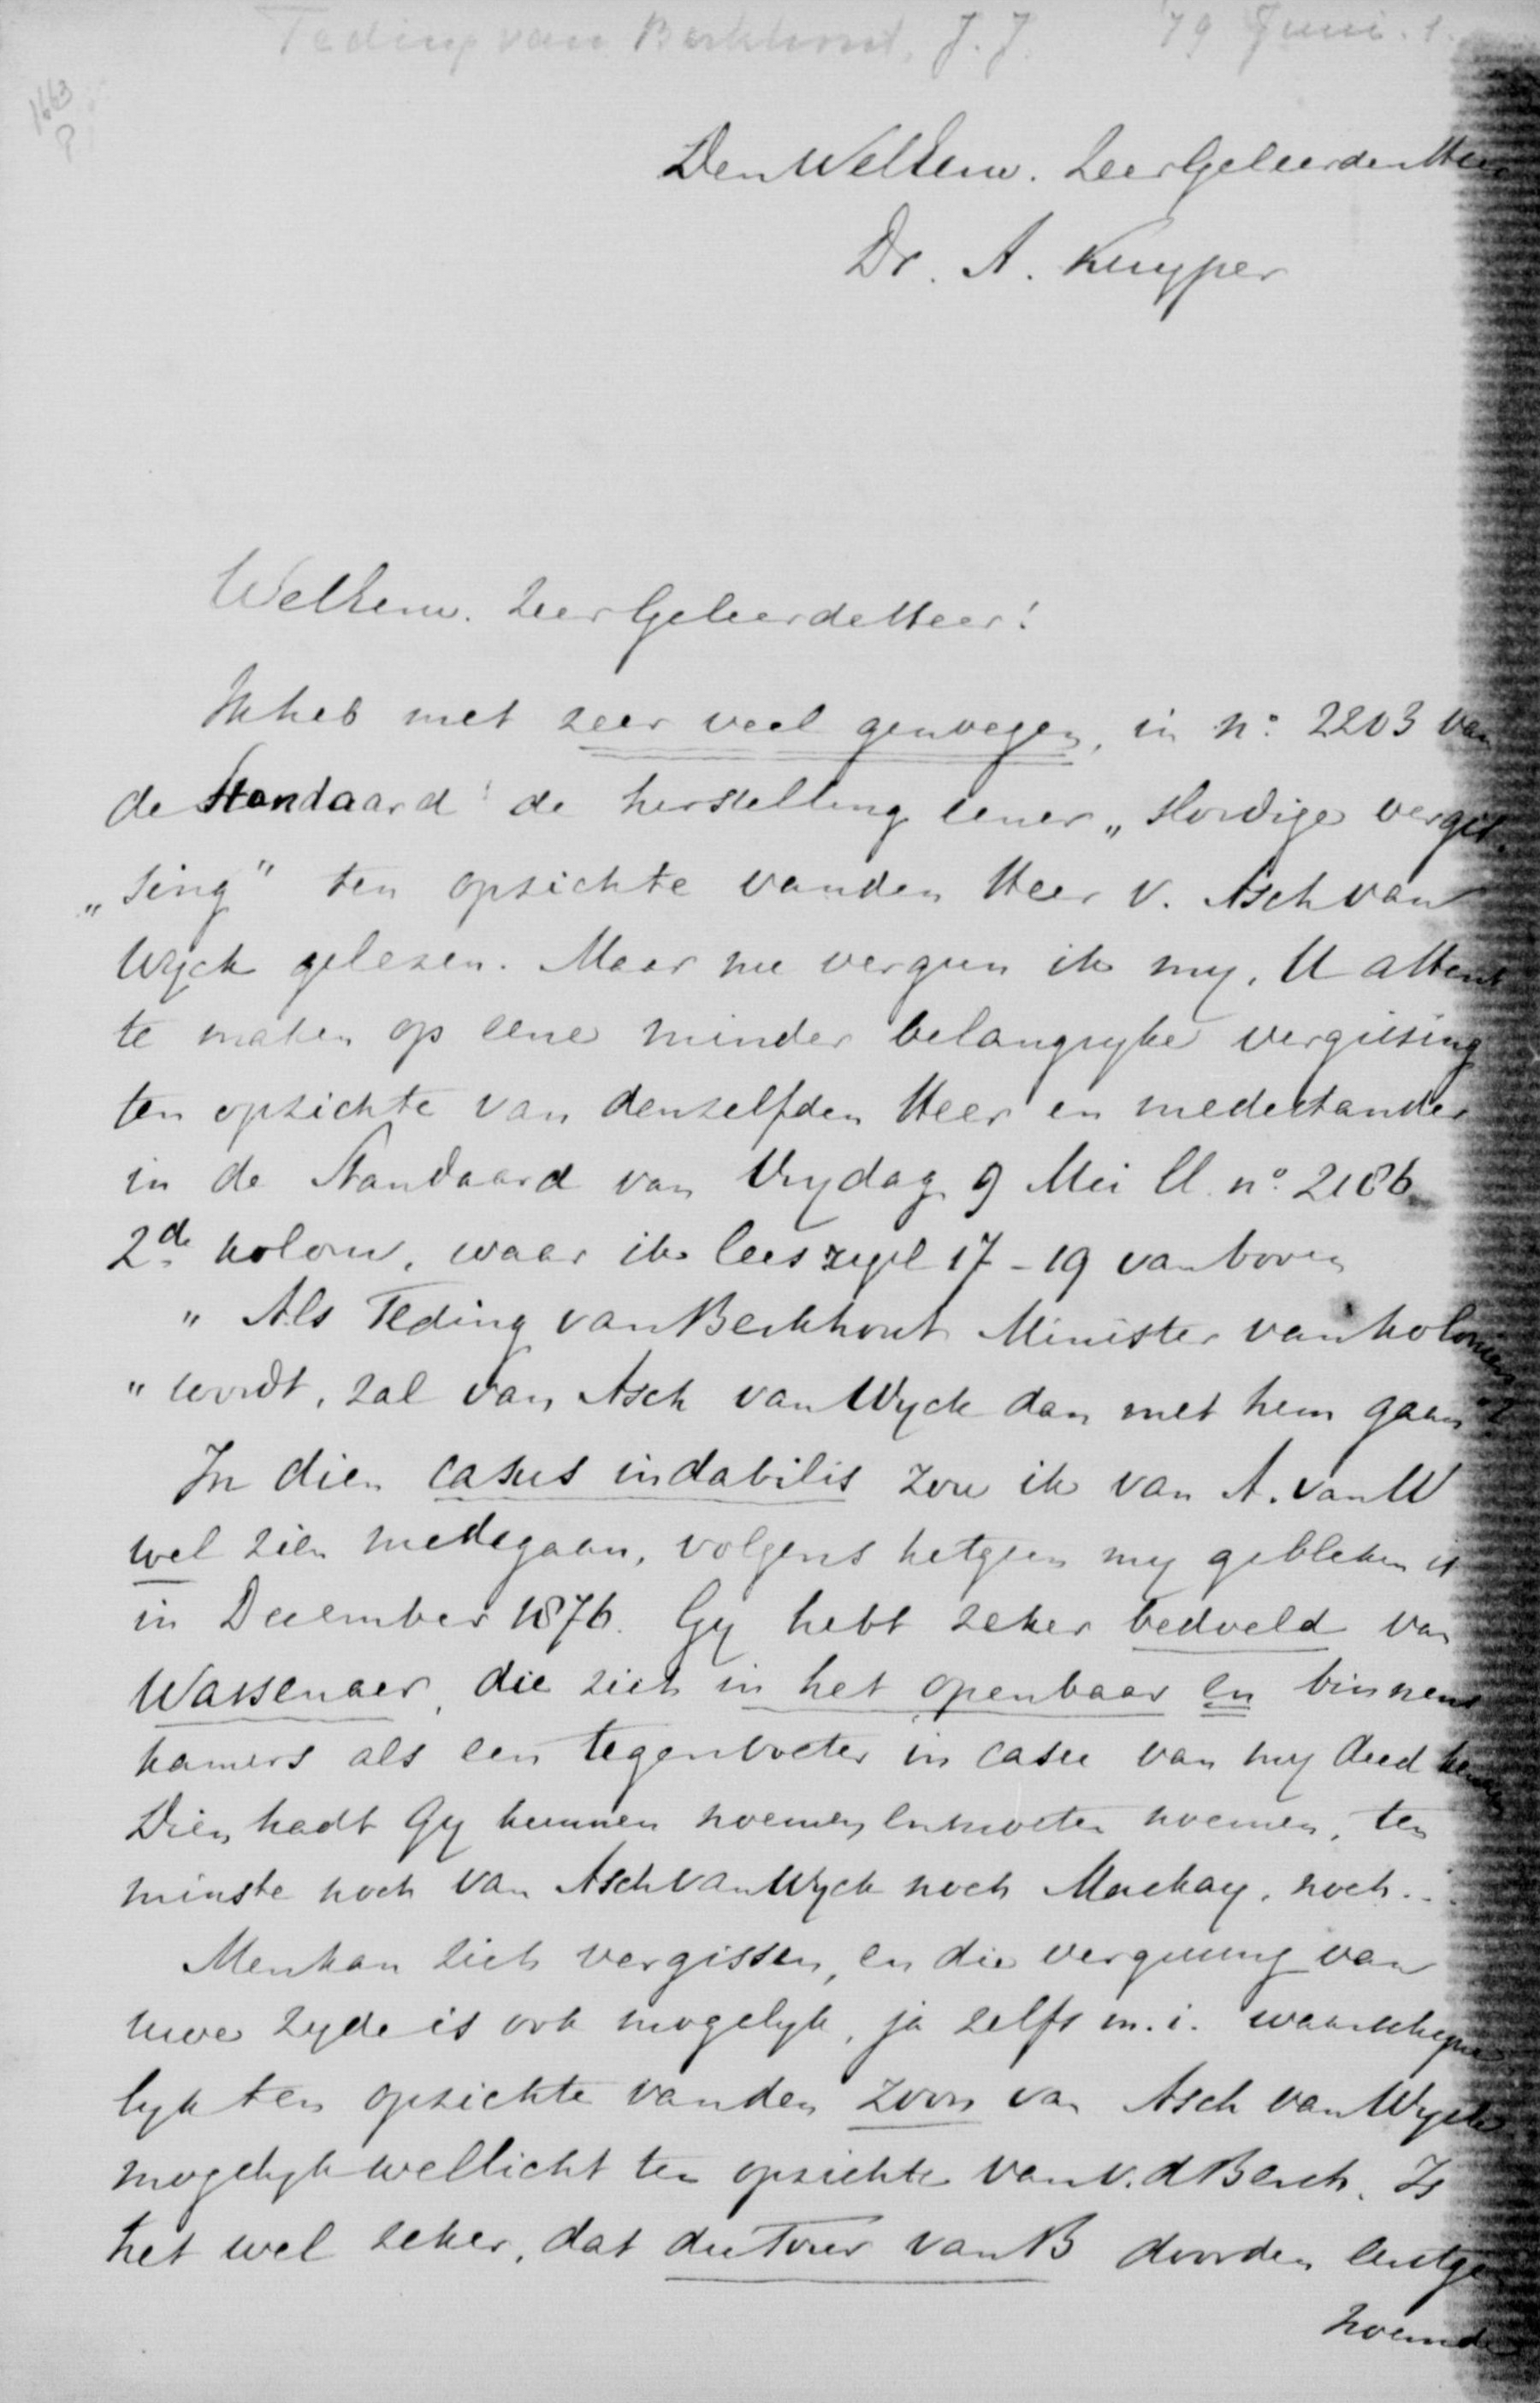 Teding van Berkhout, J. J. '79 Juni. 1.
1663
P
Den WelEerw. ZeerGeleerden Heer
Dr. A. Kuyper
WelEerw. ZeerGeleerde Heer!
Ik heb met zeer veel genoegen, in n.o 2203 van
de Standaard de herstelling eener „slordige vergis-
„sing" ten opzichte van den Heer v. Asch van
Wyck gelezen. Maar nu vergun ik my, U attent
te maken op eene minder belangryke vergissing
ten opzichte van denzelfden Heer en medestander
in de Standaard van Vrydag 9 Mei ll. n.o 2186
2.de kolom, waar ik lees regel 17-19 van boven
„Als Teding van Berkhout Minister van kolonien
„wordt, zal van Asch van Wyck dan met hem gaan"?
In dien casus indabilis zou ik van A. van W
wel zien medegaan, volgens hetgeen my gebleken is
in December 1876. Gy hebt zeker bedoeld van
Wassenaer, die zich in het openbaar en binnens
kamers als een tegenvoeter in casu van my deed kennen
Dien hadt Gy kunnen noemen, en moeten noemen, ten
minste noch van Asch van Wyck noch Mackay, noch...
Men kan zich vergissen, en die vergissing van
uwe zyde is ook mogelyk, ja zelfs m.i. waarschyn
lyk ten opzichte van den zoon van Asch van Wyck
mogelyk wellicht ten opzichte van v.d Berch. Is
het wel zeker, dat du Tour van B door den eerstge
noemde